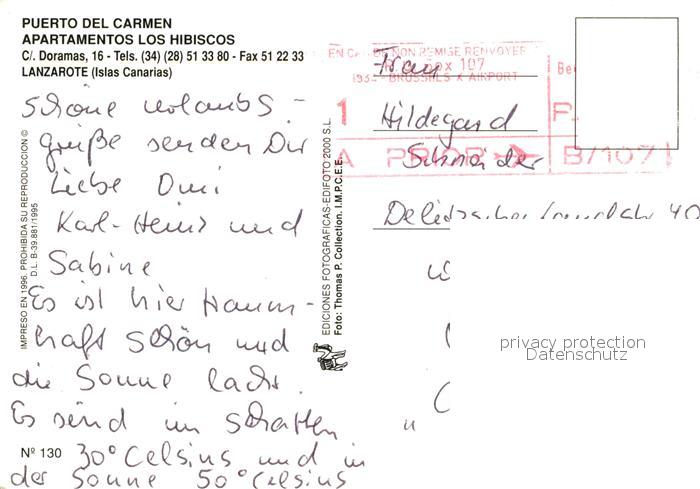 PUERTO DEL CARMEN
APARTAMENTOS LOS HIBISCOS
C/. Doramas, 16 - Tels. (34) (28) 51 33 80 - Fax 51 22 33
LANZAROTE (Islas Canarias)
Schöne Urlaubs-
grüße senden Dir
Liebe Omi
Karl-Heinz und
Sabine
Es ist hier traum-
haft schön und
die Sonne lacht.
Es sind im Schatten
30° Celsius und in
der Sonne 50° Celsius
Nº 130
IMPRESO EN 1996. PROHIBIDA SU REPRODUCCION ©
D.L. B-39.881/1995
EDICIONES FOTOGRAFICAS-EDIFOTO 2000 S.L.
Foto: Thomas P. Collection. I.M.P.C.E.E.
EN CAS DE NON REMISE RENVOYER
BOX 107
1931 BRUSSELS X AIRPORT
Be
1
P.
A PRIOR
B/107
Frau
Hildegard
Schneider
40
privacy protection
Datenschutz